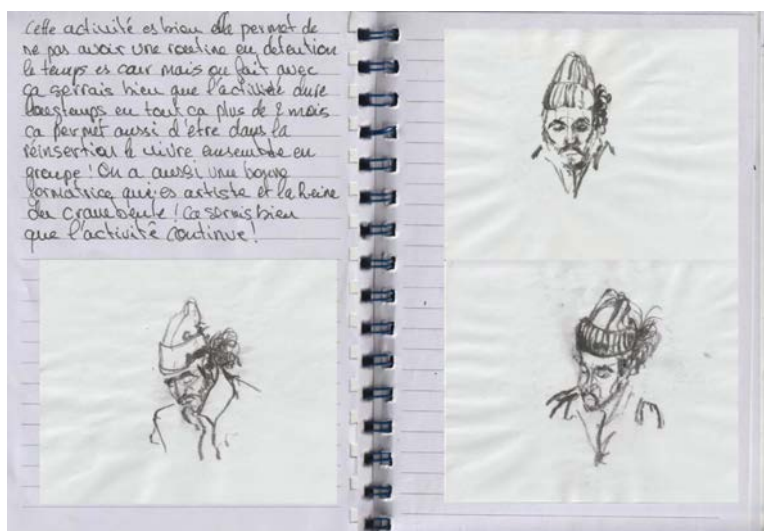 Cette activité es bien elle permet de
ne pas avoir une routine en détention
le temps es cour mais on fait avec
ça serrais bien que l'activité dure
longtemps en tout ca plus de 2 mois
ca permet aussi d'être dans la
réinsertion le vivre ensemble en
groupe ! On a aussi une bonne
formatrice qui es artiste et la Reine
du ! Ca serais bien
que l'activité continue !